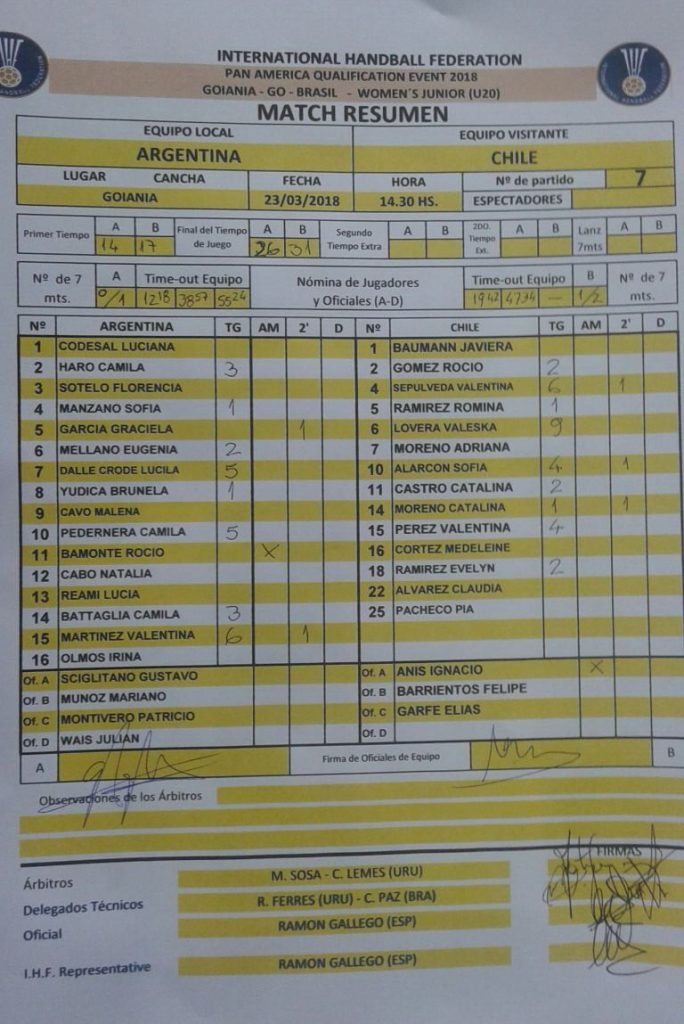 INTERNATIONAL HANDBALL FEDERATION
PAN AMERICA QUALIFICATION EVENT 2018
GOIANIA - GO - BRASIL - WOMEN´S JUNIOR (U20)
MATCH RESUMEN
EQUIPO LOCAL EQUIPO VISITANTE
ARGENTINA CHILE
LUGAR CANCHA FECHA HORA Nº de partido 7
GOIANIA 23/03/2018 14.30 HS. ESPECTADORES
Primer Tiempo A B Final del Tiempo de Juego A B Segundo Tiempo Extra A B 2DO. Tiempo Ext. A B Lanz 7mts A B
14 17 26 31
Nº de 7 mts. A Time-out Equipo Nómina de Jugadores y Oficiales (A-D) Time-out Equipo B Nº de 7 mts.
0/1 1218 3857 5524 1942 4734 — 1/2
Nº ARGENTINA TG AM 2' D Nº CHILE TG AM 2' D
1 CODESAL LUCIANA 1 BAUMANN JAVIERA
2 HARO CAMILA 3 2 GOMEZ ROCIO 2
3 SOTELO FLORENCIA 4 SEPULVEDA VALENTINA 6 1
4 MANZANO SOFIA 1 5 RAMIREZ ROMINA 1
5 GARCIA GRACIELA 1 6 LOVERA VALESKA 9
6 MELLANO EUGENIA 2 7 MORENO ADRIANA
7 DALLE CRODE LUCILA 5 10 ALARCON SOFIA 4 1
8 YUDICA BRUNELA 1 11 CASTRO CATALINA 2
9 CAVO MALENA 14 MORENO CATALINA 1 1
10 PEDERNERA CAMILA 5 15 PEREZ VALENTINA 4
11 BAMONTE ROCIO X 16 CORTEZ MEDELEINE
12 CABO NATALIA 18 RAMIREZ EVELYN 2
13 REAMI LUCIA 22 ALVAREZ CLAUDIA
14 BATTAGLIA CAMILA 3 25 PACHECO PIA
15 MARTINEZ VALENTINA 6 1
16 OLMOS IRINA
Of. A SCIGLITANO GUSTAVO Of. A ANIS IGNACIO X
Of. B MUNOZ MARIANO Of. B BARRIENTOS FELIPE
Of. C MONTIVERO PATRICIO Of. C GARFE ELIAS
Of. D WAIS JULIAN Of. D
A Firma de Oficiales de Equipo B
Observaciones de los Árbitros
FIRMAS
Árbitros M. SOSA - C. LEMES (URU)
Delegados Técnicos R. FERRES (URU) - C. PAZ (BRA)
Oficial RAMON GALLEGO (ESP)
I.H.F. Representative RAMON GALLEGO (ESP)